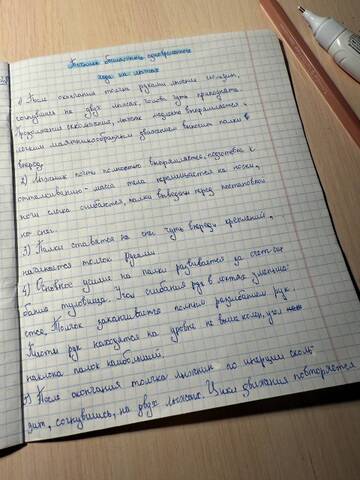 Техника бесшажного одновременного
хода на лыжах
1) После окончания толчка руками лыжник скользит,
согнувшись на двух лыжах, голова чуть приподнята.
Продолжая скольжение, лыжник медленно выпрямляется и
лёгким маятникообразным движением выносит палки
вперёд.
2) Лыжник почти полностью выпрямляется, подготовка к
отталкиванию - масса тела перемещается на носки,
ноги слегка сгибаются, палки выведены перед постановкой
на снег.
3) Палки ставятся на снег чуть впереди креплений,
начинается толчок руками.
4) Основное усилие на палки развивается за счёт сги-
бания туловища. Угол сгибания рук в локтях уменьша-
ется. Толчок заканчивается полным разгибанием рук.
Кисти рук находятся на уровне не выше колен, угол
наклона палок наибольший.
5) После окончания толчка лыжник по инерции сколь-
зит, согнувшись, на двух лыжах. Цикл движения повторяется